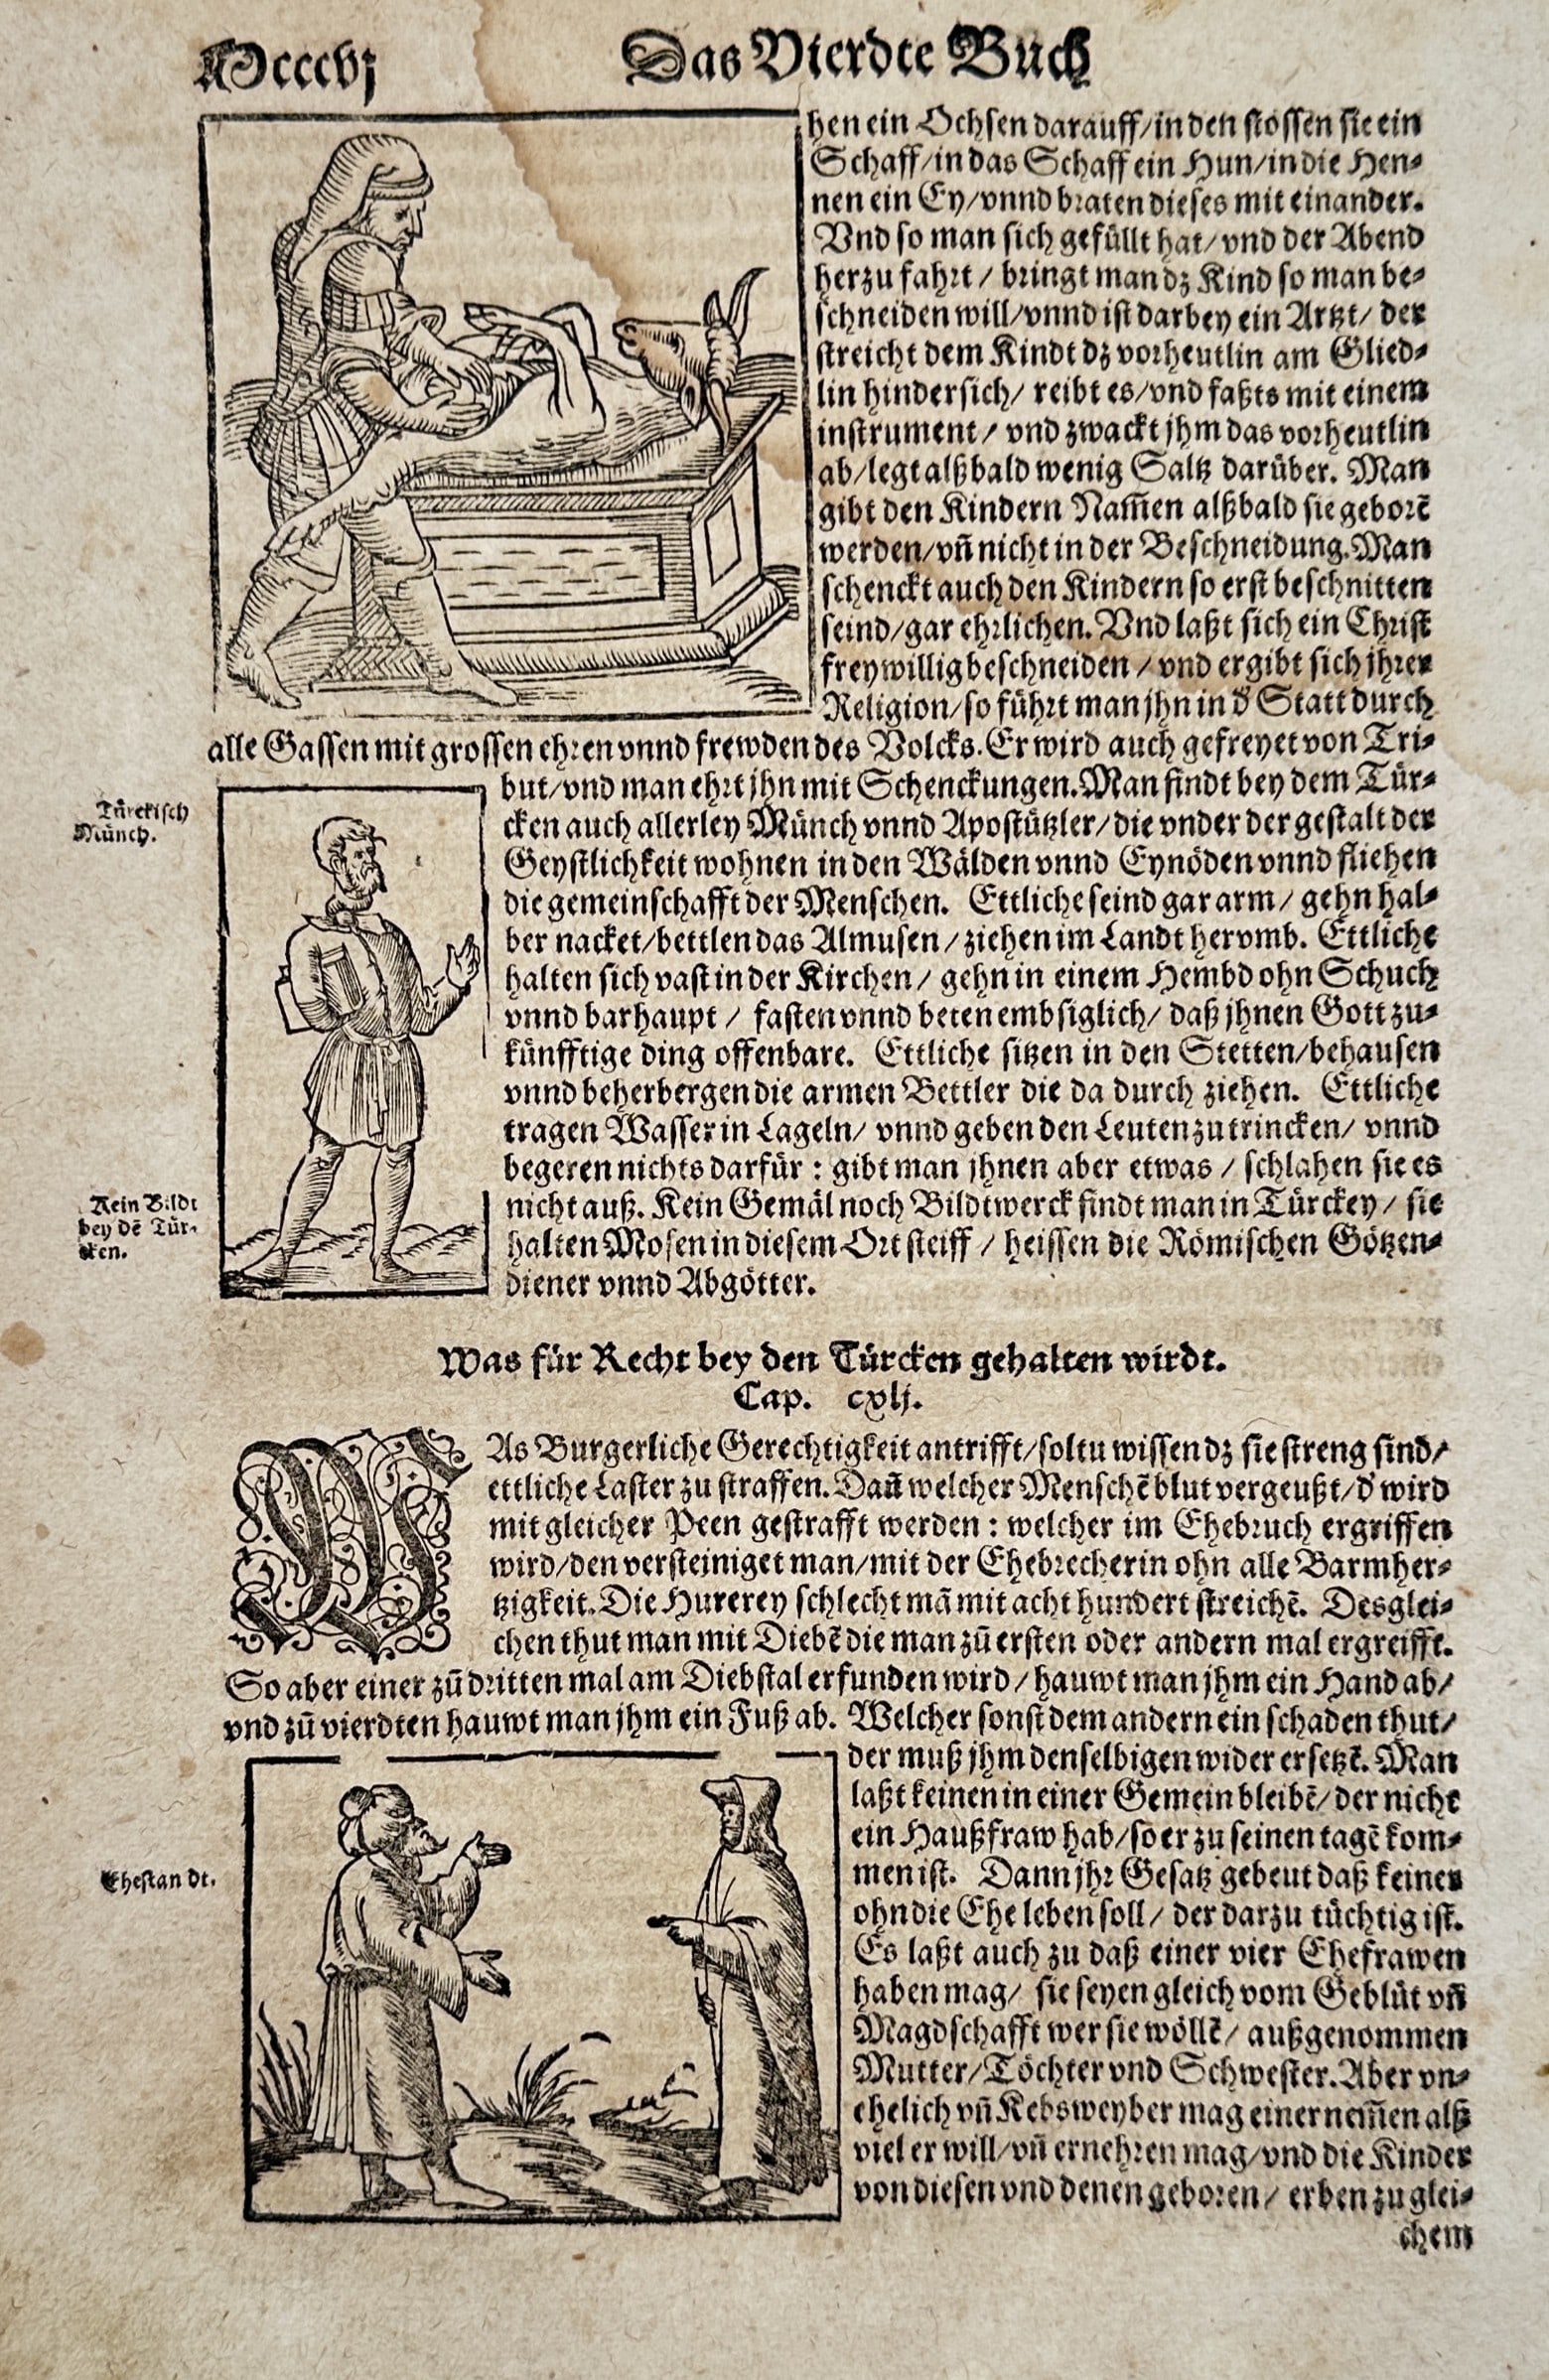 Mccccvj
Das Vierdte Buch
hen ein Ochsen darauff/in den stossen sie ein
Schaff/in das Schaff ein Hun/in die Hen⸗
nen ein Ey/vnnd braten dieses mit einander.
Vnd so man sich gefüllt hat/vnd der Abend
herzu fahrt/ bringt man dz Kind so man be⸗
schneiden will/vnnd ist darbey ein Artzt/ der
streicht dem Kindt dz vorheutlin am Glied⸗
lin hindersich/ reibt es/vnd faßts mit einem
instrument/ vnd zwackt jhm das vorheutlin
ab/legt alßbald wenig Saltz darüber. Man
gibt den Kindern Nam̃en alßbald sie geborẽ
werden/vñ nicht in der Beschneidung. Man
schenckt auch den Kindern so erst beschnitten
seind/gar ehrlichen. Vnd laßt sich ein Christ
freywillig beschneiden/ vnd ergibt sich jhrer
Religion/so führt man jhn in d̾ Statt durch
alle Gassen mit grossen ehren vnnd frewden des Volcks. Er wird auch gefreyet von Tri⸗
but/vnd man ehrt jhn mit Schenckungen. Man findt bey dem Tür⸗
cken auch allerley Münch vnnd Apostützler/die vnder der gestalt der
Geystlichkeit wohnen in den Wälden vnnd Eynöden vnnd fliehen
die gemeinschafft der Menschen. Ettliche seind gar arm/ gehn hal⸗
ber nacket/bettlen das Almusen/ziehen im Landt hervmb. Ettliche
halten sich vast in der Kirchen/ gehn in einem Hembd ohn Schuch
vnnd barhaupt/ fasten vnnd beten embsiglich/ daß jhnen Gott zu⸗
künfftige ding offenbare. Ettliche sitzen in den Stetten/behausen
vnnd beherbergen die armen Bettler die da durch ziehen. Ettliche
tragen Wasser in Lageln/ vnnd geben den Leuten zu trincken/ vnnd
begeren nichts darfür: gibt man jhnen aber etwas/ schlahen sie es
nicht auß. Kein Gemäl noch Bildtwerck findt man in Türckey/ sie
halten Mosen in diesem Ort steiff/ heissen die Römischen Götzen⸗
diener vnnd Abgötter.
Türckisch
Münch.
Kein Bildt
bey dẽ Tür⸗
cken.
Was für Recht bey den Türcken gehalten wirdt.
Cap. cxlj.
WAs Burgerliche Gerechtigkeit antrifft/soltu wissen dz sie streng sind/
ettliche Laster zu straffen. Dañ welcher Menschẽ blut vergeußt/d̾ wird
mit gleicher Peen gestrafft werden: welcher im Ehebruch ergriffen
wird/den versteiniget man/mit der Ehebrecherin ohn alle Barmher⸗
tzigkeit. Die Hurerey schlecht mã mit acht hundert streichẽ. Desglei⸗
chen thut man mit Diebẽ die man zũ ersten oder andern mal ergreifft.
So aber einer zũ dritten mal am Diebstal erfunden wird/ hauwt man jhm ein Hand ab/
vnd zũ vierdten hauwt man jhm ein Fuß ab. Welcher sonst dem andern ein schaden thut/
der muß jhm denselbigen wider ersetzẽ. Man
laßt keinen in einer Gemein bleibẽ/der nicht
ein Haußfraw hab/so er zu seinen tagẽ kom⸗
men ist. Dann jhr Gesatz gebeut daß keiner
ohn die Ehe leben soll/ der darzu tüchtig ist.
Es laßt auch zu daß einer vier Ehefrawen
haben mag/ sie seyen gleich vom Geblüt vñ
Magdschafft wer sie wöllẽ/ außgenommen
Mutter/Töchter vnd Schwester. Aber vn⸗
ehelich vñ Kebsweyber mag einer nem̃en alß
viel er will/vñ ernehren mag/vnd die Kinder
von diesen vnd denen geboren/ erben zu glei⸗
chem
Ehestandt.